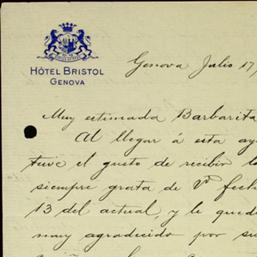 HÔTEL BRISTOL
GENOVA
Genova Julio 17,
Muy estimada Barbarita
Al llegar á esta ay
tuve el gusto de recibir la
siempre grata de Vd fech
13 del actual, y le qued
muy agradecido por su